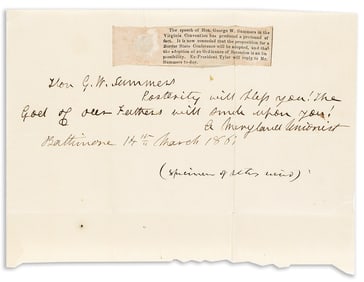 The speech of Hon. George W. Summers in the
Virginia Convention has produced a profound effect.
It is now conceded that the proposition for a
Border State Conference will be adopted, and that
the adoption of an Ordinance of Secession is an impossibility.
Ex-President Tyler will reply to Mr.
Summers to-day.
Hon G. W. Summers
Posterity will bless you! the
God of our Fathers will smile upon you!
A Maryland Unionist
Baltimore 14th March 1861
(specimen of its kind)